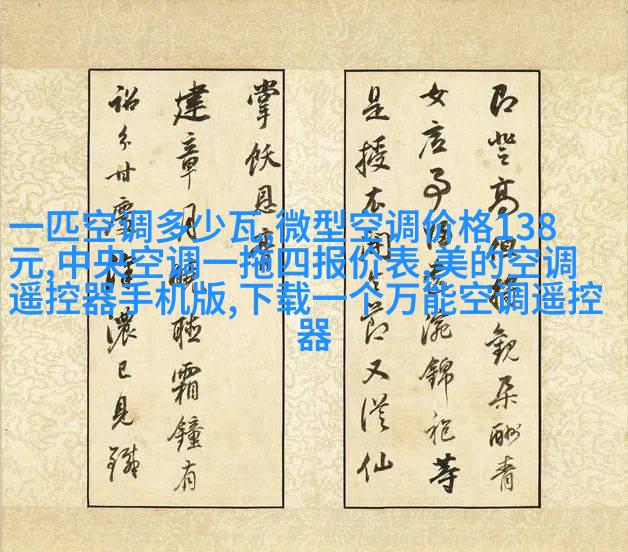 一匹空调多少瓦,微型空调价格138
元,中央空调一拖四报价表,美的空调
遥控器手机版,下载一个万能空调遥控
器
即登高俱觀朵酬青
女錦袍等
是授衣又從仙
掌飫恩
建章月霜鐘有
甘露濃已見